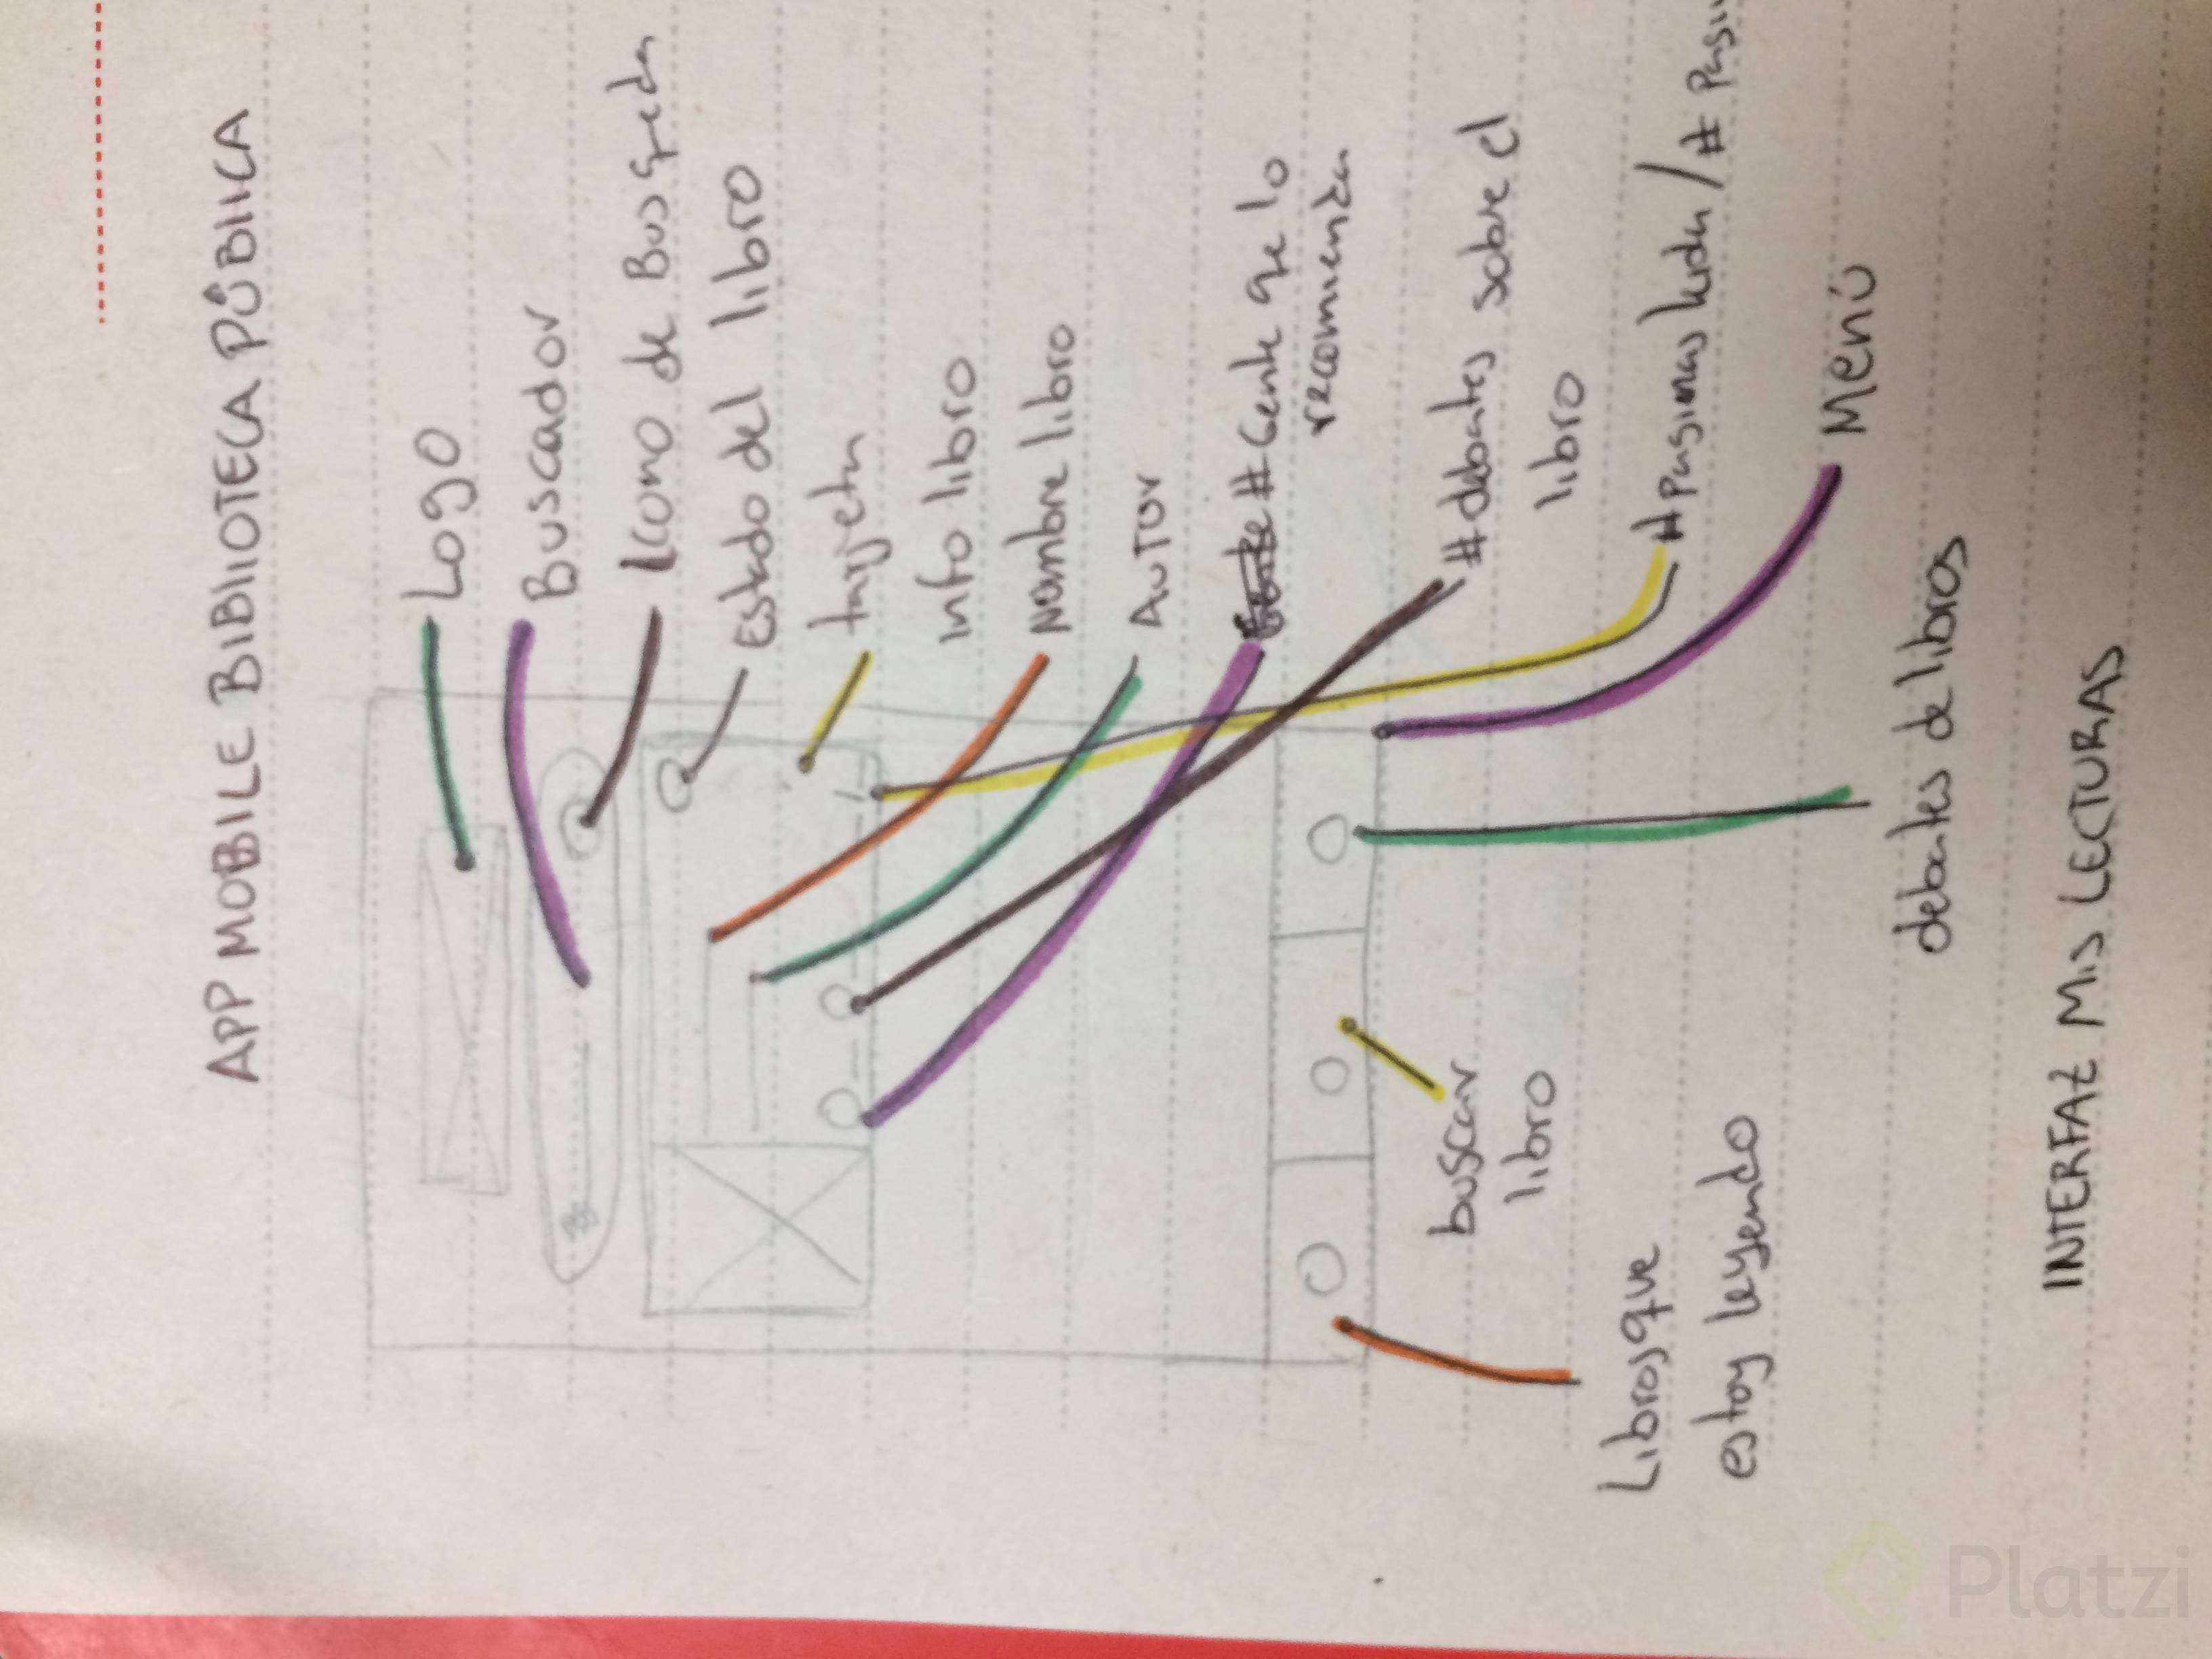 APP MOBILE BIBLIOTECA PÚBLICA
Logo
Buscador
Icono de Busqueda
Estado del libro
tarjeta
Info libro
Nombre libro
AUTOR
# Gente que lo
recomienda
# debates sobre el
libro
# Paginas leidas / #
Menú
buscar
libro
Libros que
estoy leyendo
debates de libros
INTERFAZ MIS LECTURAS
Platzi